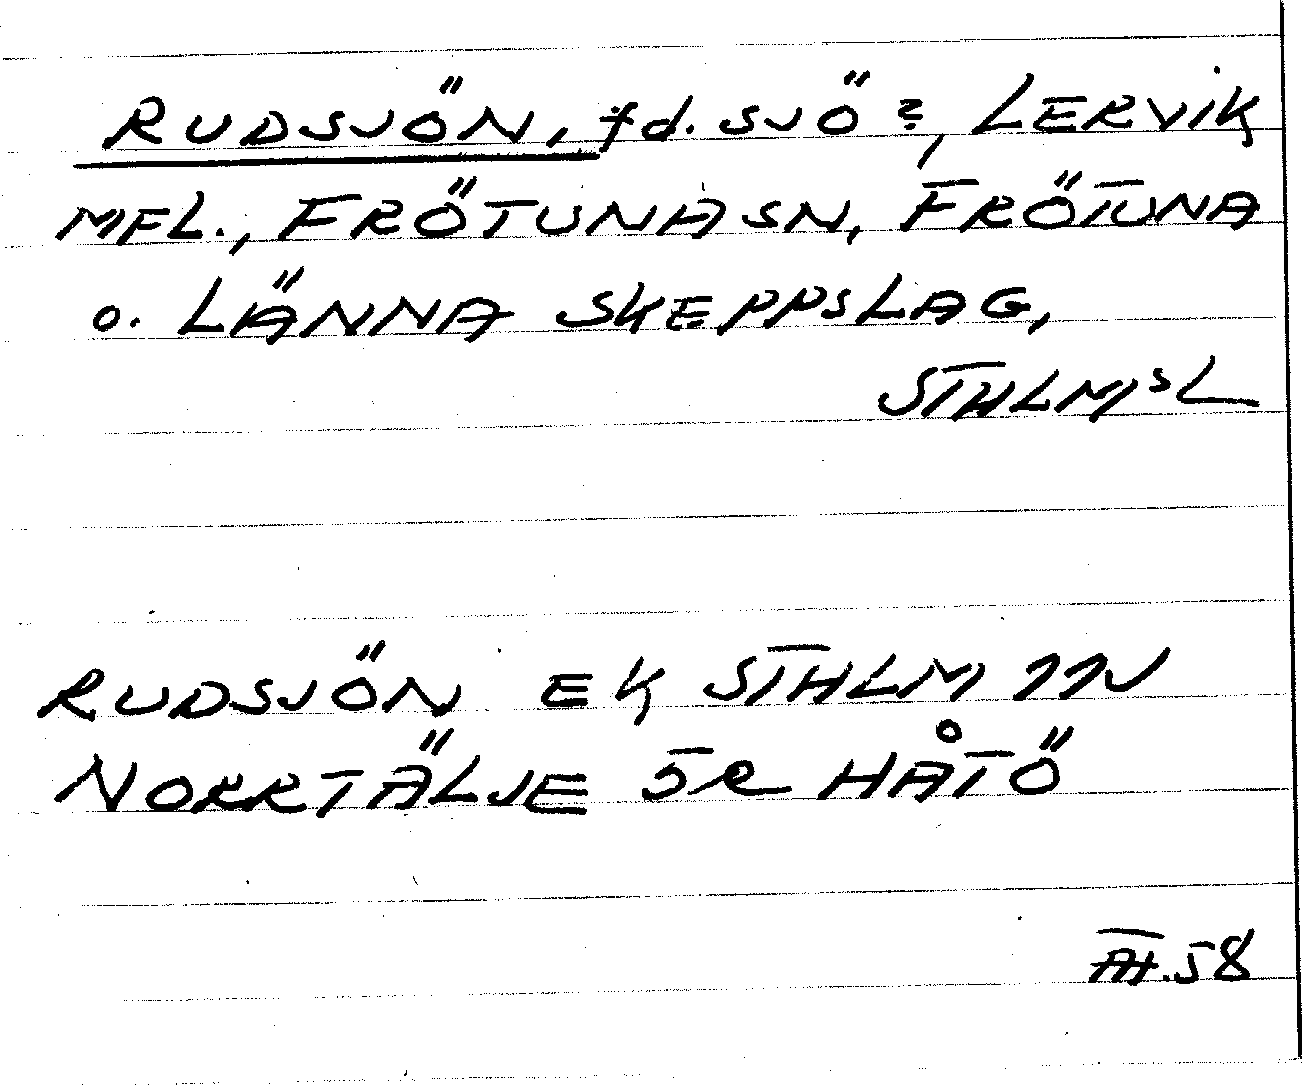 RUDSJÖN, fd. SJÖ?, LERVIK
MFL., FRÖTUNA SN, FRÖTUNA
o. LÄNNA SKEPPSLAG,
STHLMSL
RUDSJÖN EK STHLM 11V
NORRTÄLJE SR HÅTÖ